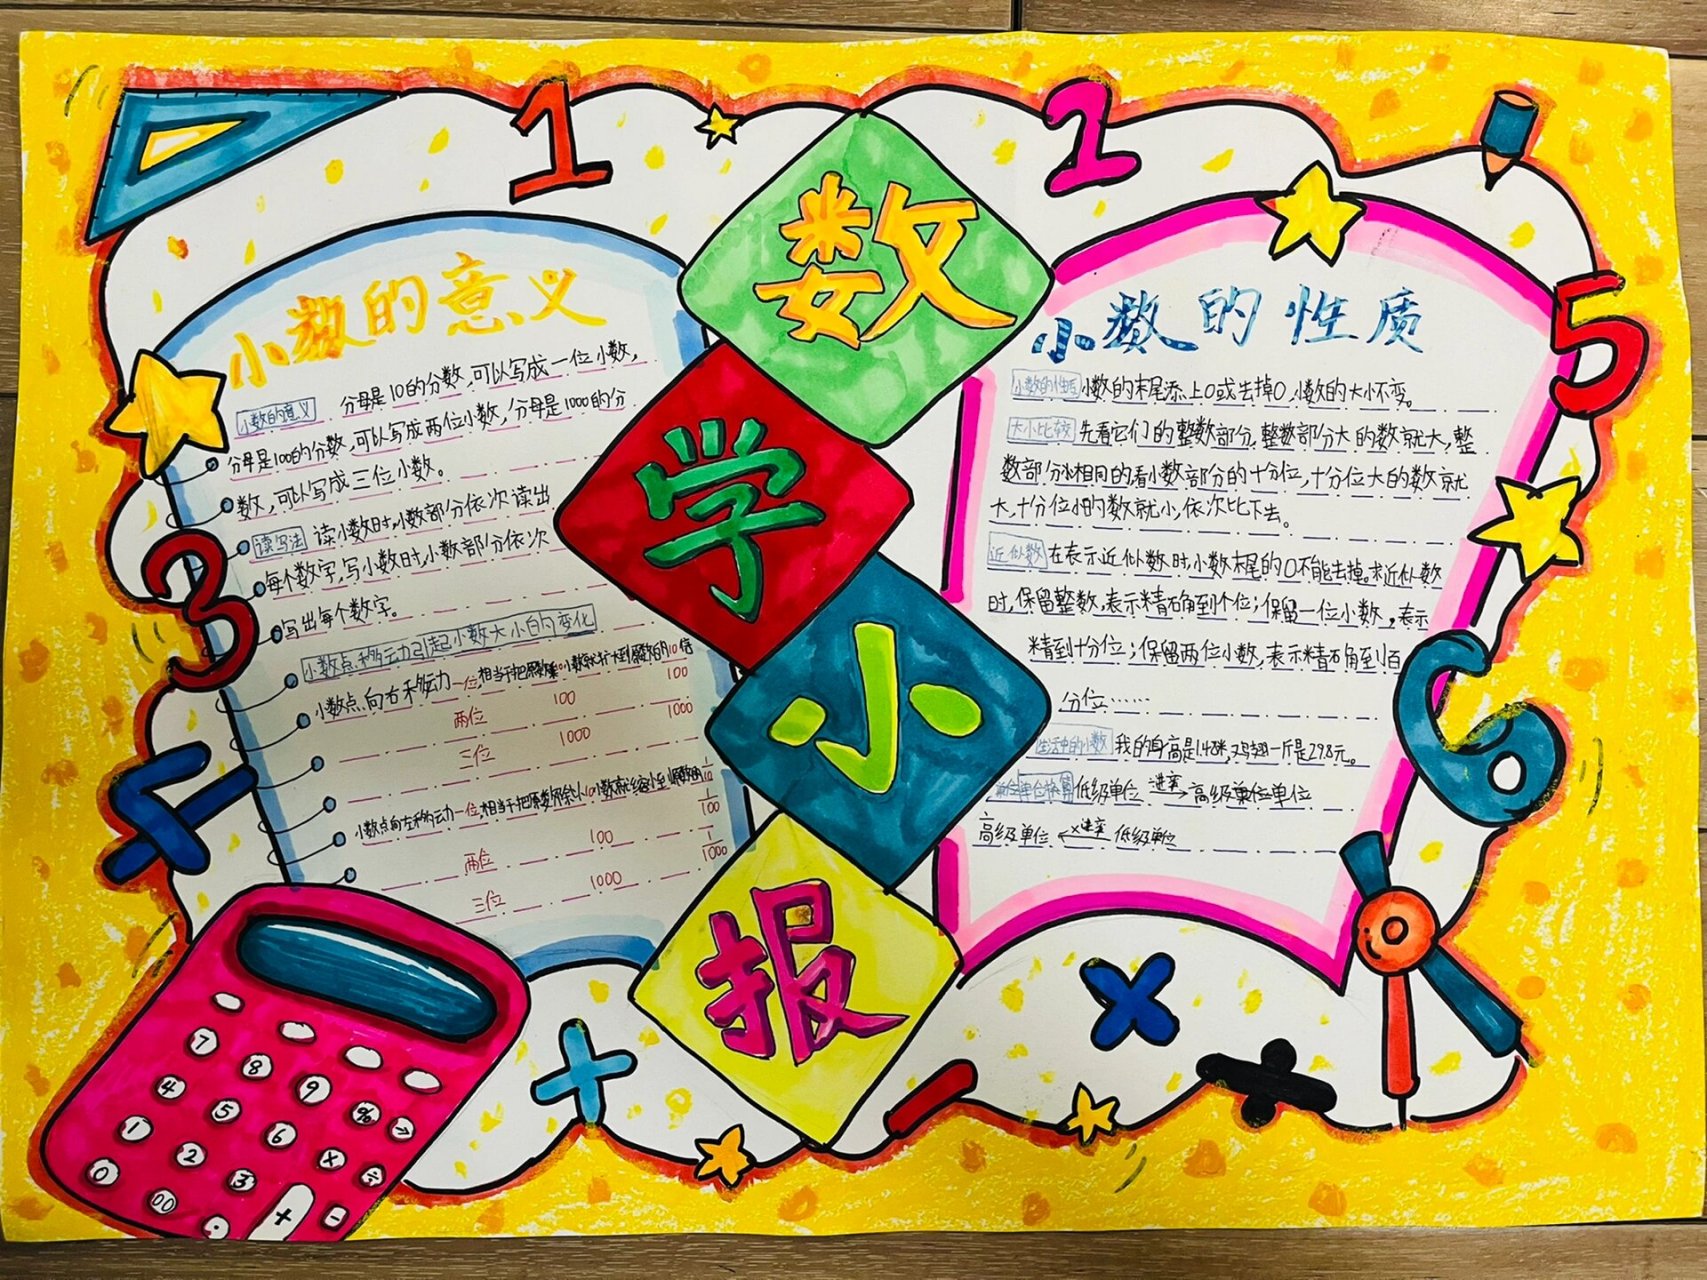 1
2
3
4
5
6
数
学
小
报
小数的意义
小数的意义 分母是10的分数,可以写成一位小数,
分母是100的分数,可以写成两位小数,分母是1000的分
数,可以写成三位小数。
读写法 读小数时,小数部分依次读出
每个数字,写小数时,小数部分依次
写出每个数字。
小数点移动引起小数大小的变化
小数点向右移动一位,相当于把原数乘10小数就扩大到原数的10倍
两位 100 100
三位 1000 1000
小数点向左移动一位,相当于把原数除以10小数就缩小到原数的1/10
两位 100 1/100
三位 1000 1/1000
小数的性质
小数的性质 小数的末尾添上0或去掉0,小数的大小不变。
大小比较 先看它们的整数部分,整数部分大的数就大,整
数部分相同的看小数部分的十分位,十分位大的数就
大,十分位小的数就小,依次比下去。
近似数 在表示近似数时,小数末尾的0不能去掉。求近似数
时,保留整数,表示精确到个位;保留一位小数,表示
精到十分位;保留两位小数,表示精确到百
分位……
生活中的小数 我的身高是1.48米,鸡翅一斤是29.8元。
低级单位 进率→ 高级单位单位
高级单位 ←×进率 低级单位
7 8 9 % →
4 5 6 × ÷
1 2 3 + -
0 00 ·
+ - × ÷